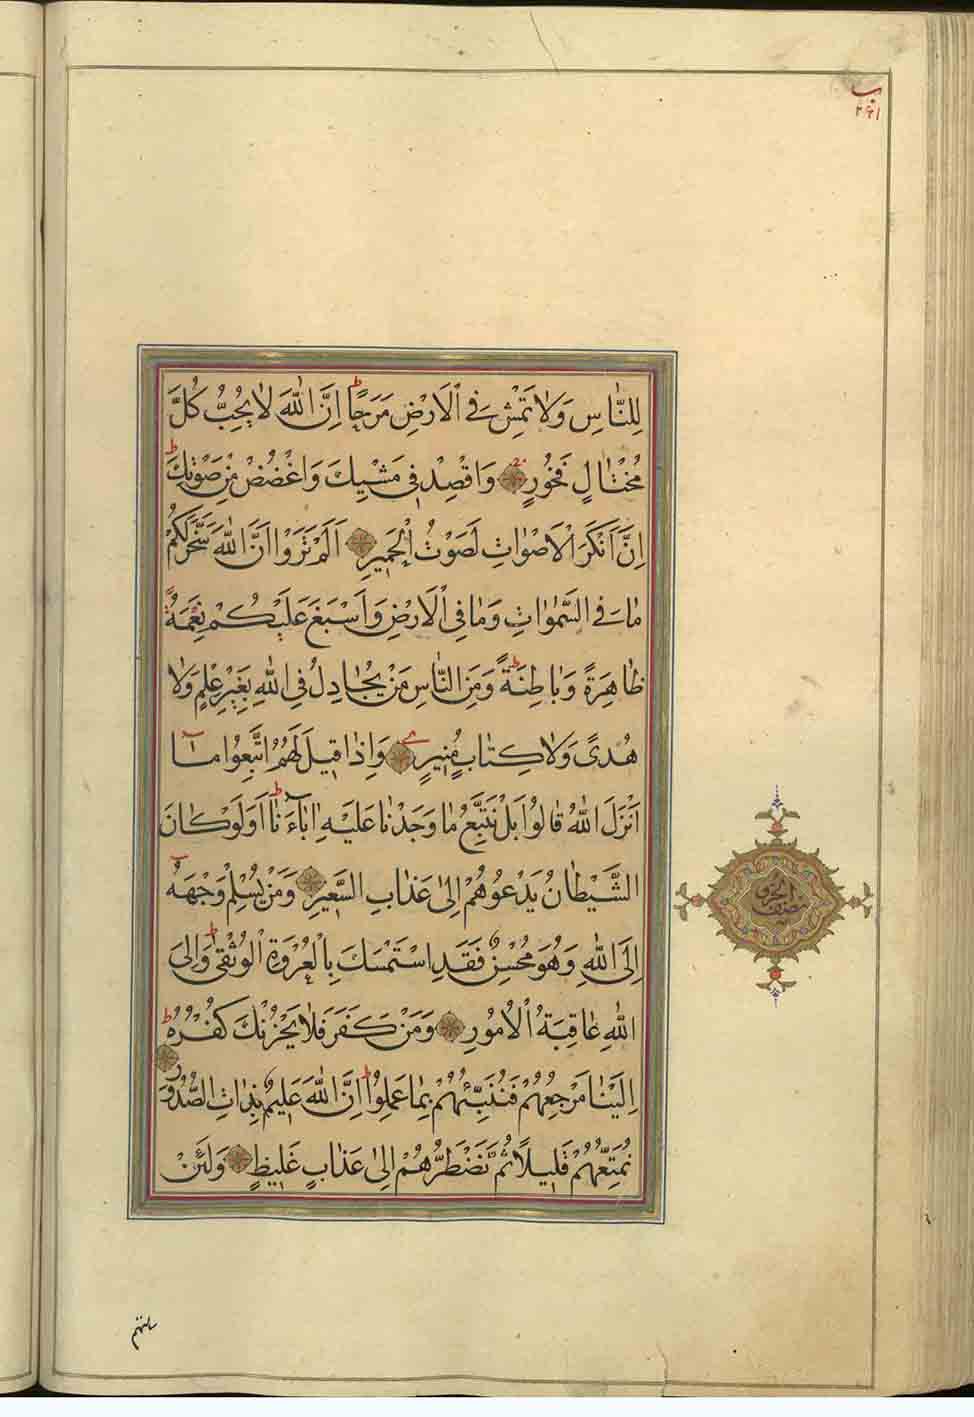 لِلنَّاسِ وَلَا تَمْشِ فِى الْاَرْضِ مَرَحًا ط اِنَّ اللّٰهَ لَا يُحِبُّ كُلَّ
مُخْتَالٍ فَخُورٍ وَاقْصِدْ فِى مَشْيِكَ وَاغْضُضْ مِنْ صَوْتِكَ ط
اِنَّ اَنْكَرَ الْاَصْوَاتِ لَصَوْتُ الْحَمِيرِ اَلَمْ تَرَوْا اَنَّ اللّٰهَ سَخَّرَ لَكُمْ
مَا فِى السَّمٰوَاتِ وَمَا فِى الْاَرْضِ وَاَسْبَغَ عَلَيْكُمْ نِعَمَهُ
ظَاهِرَةً وَبَاطِنَةً ط وَمِنَ النَّاسِ مَنْ يُجَادِلُ فِى اللّٰهِ بِغَيْرِ عِلْمٍ وَلَا
هُدًى وَلَا كِتَابٍ مُنِيرٍ وَاِذَا قِيلَ لَهُمُ اتَّبِعُوا مَا
اَنْزَلَ اللّٰهُ قَالُوا بَلْ نَتَّبِعُ مَا وَجَدْنَا عَلَيْهِ اٰبَاءَنَا ط اَوَلَوْ كَانَ
الشَّيْطَانُ يَدْعُوهُمْ اِلىٰ عَذَابِ السَّعِيرِ وَمَنْ يُسْلِمْ وَجْهَهُ
اِلَى اللّٰهِ وَهُوَ مُحْسِنٌ فَقَدِ اسْتَمْسَكَ بِالْعُرْوَةِ الْوُثْقىٰ ط وَاِلَى
اللّٰهِ عَاقِبَةُ الْاُمُورِ وَمَنْ كَفَرَ فَلَا يَحْزُنْكَ كُفْرُهُ ط
اِلَيْنَا مَرْجِعُهُمْ فَنُنَبِّئُهُمْ بِمَا عَمِلُوا ط اِنَّ اللّٰهَ عَلِيمٌ بِذَاتِ الصُّدُورِ
نُمَتِّعُهُمْ قَلِيلًا ثُمَّ نَضْطَرُّهُمْ اِلىٰ عَذَابٍ غَلِيظٍ وَلَئِنْ
نصف الحزب